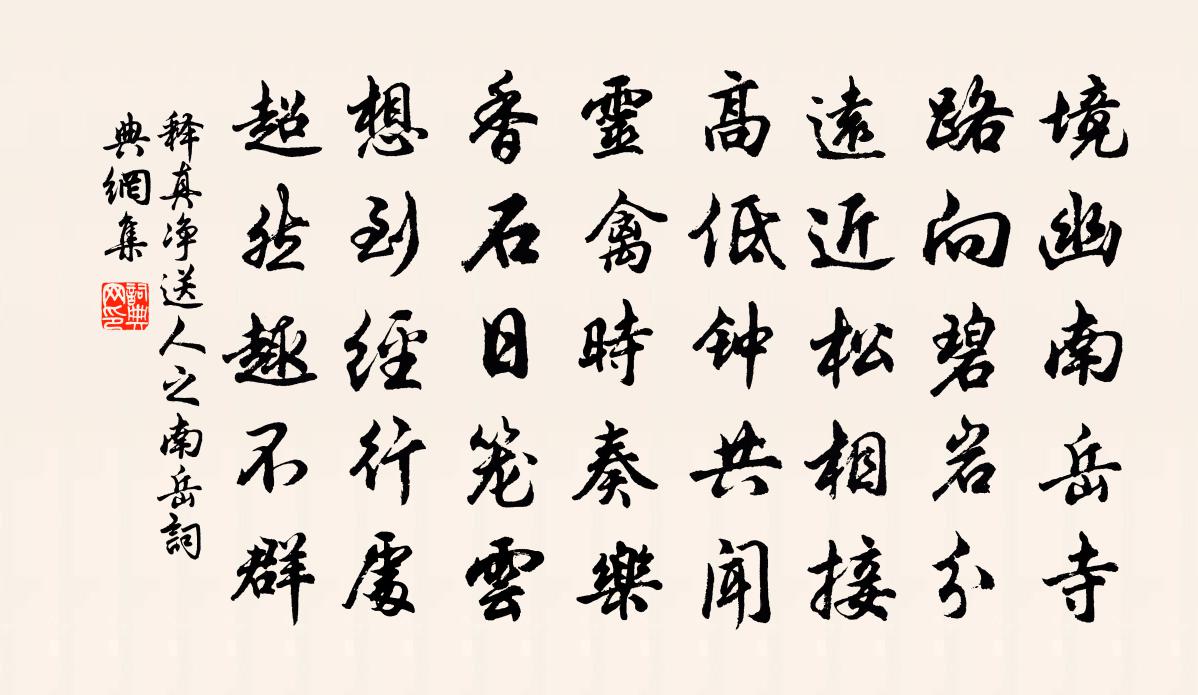 境幽南岳寺
路向碧岩分
遠近松相接
高低钟共闻
靈禽時奏樂
香石日笼雲
想到經行處
超然趣不群
释真净送人之南岳詞
典網集
詞典
网印